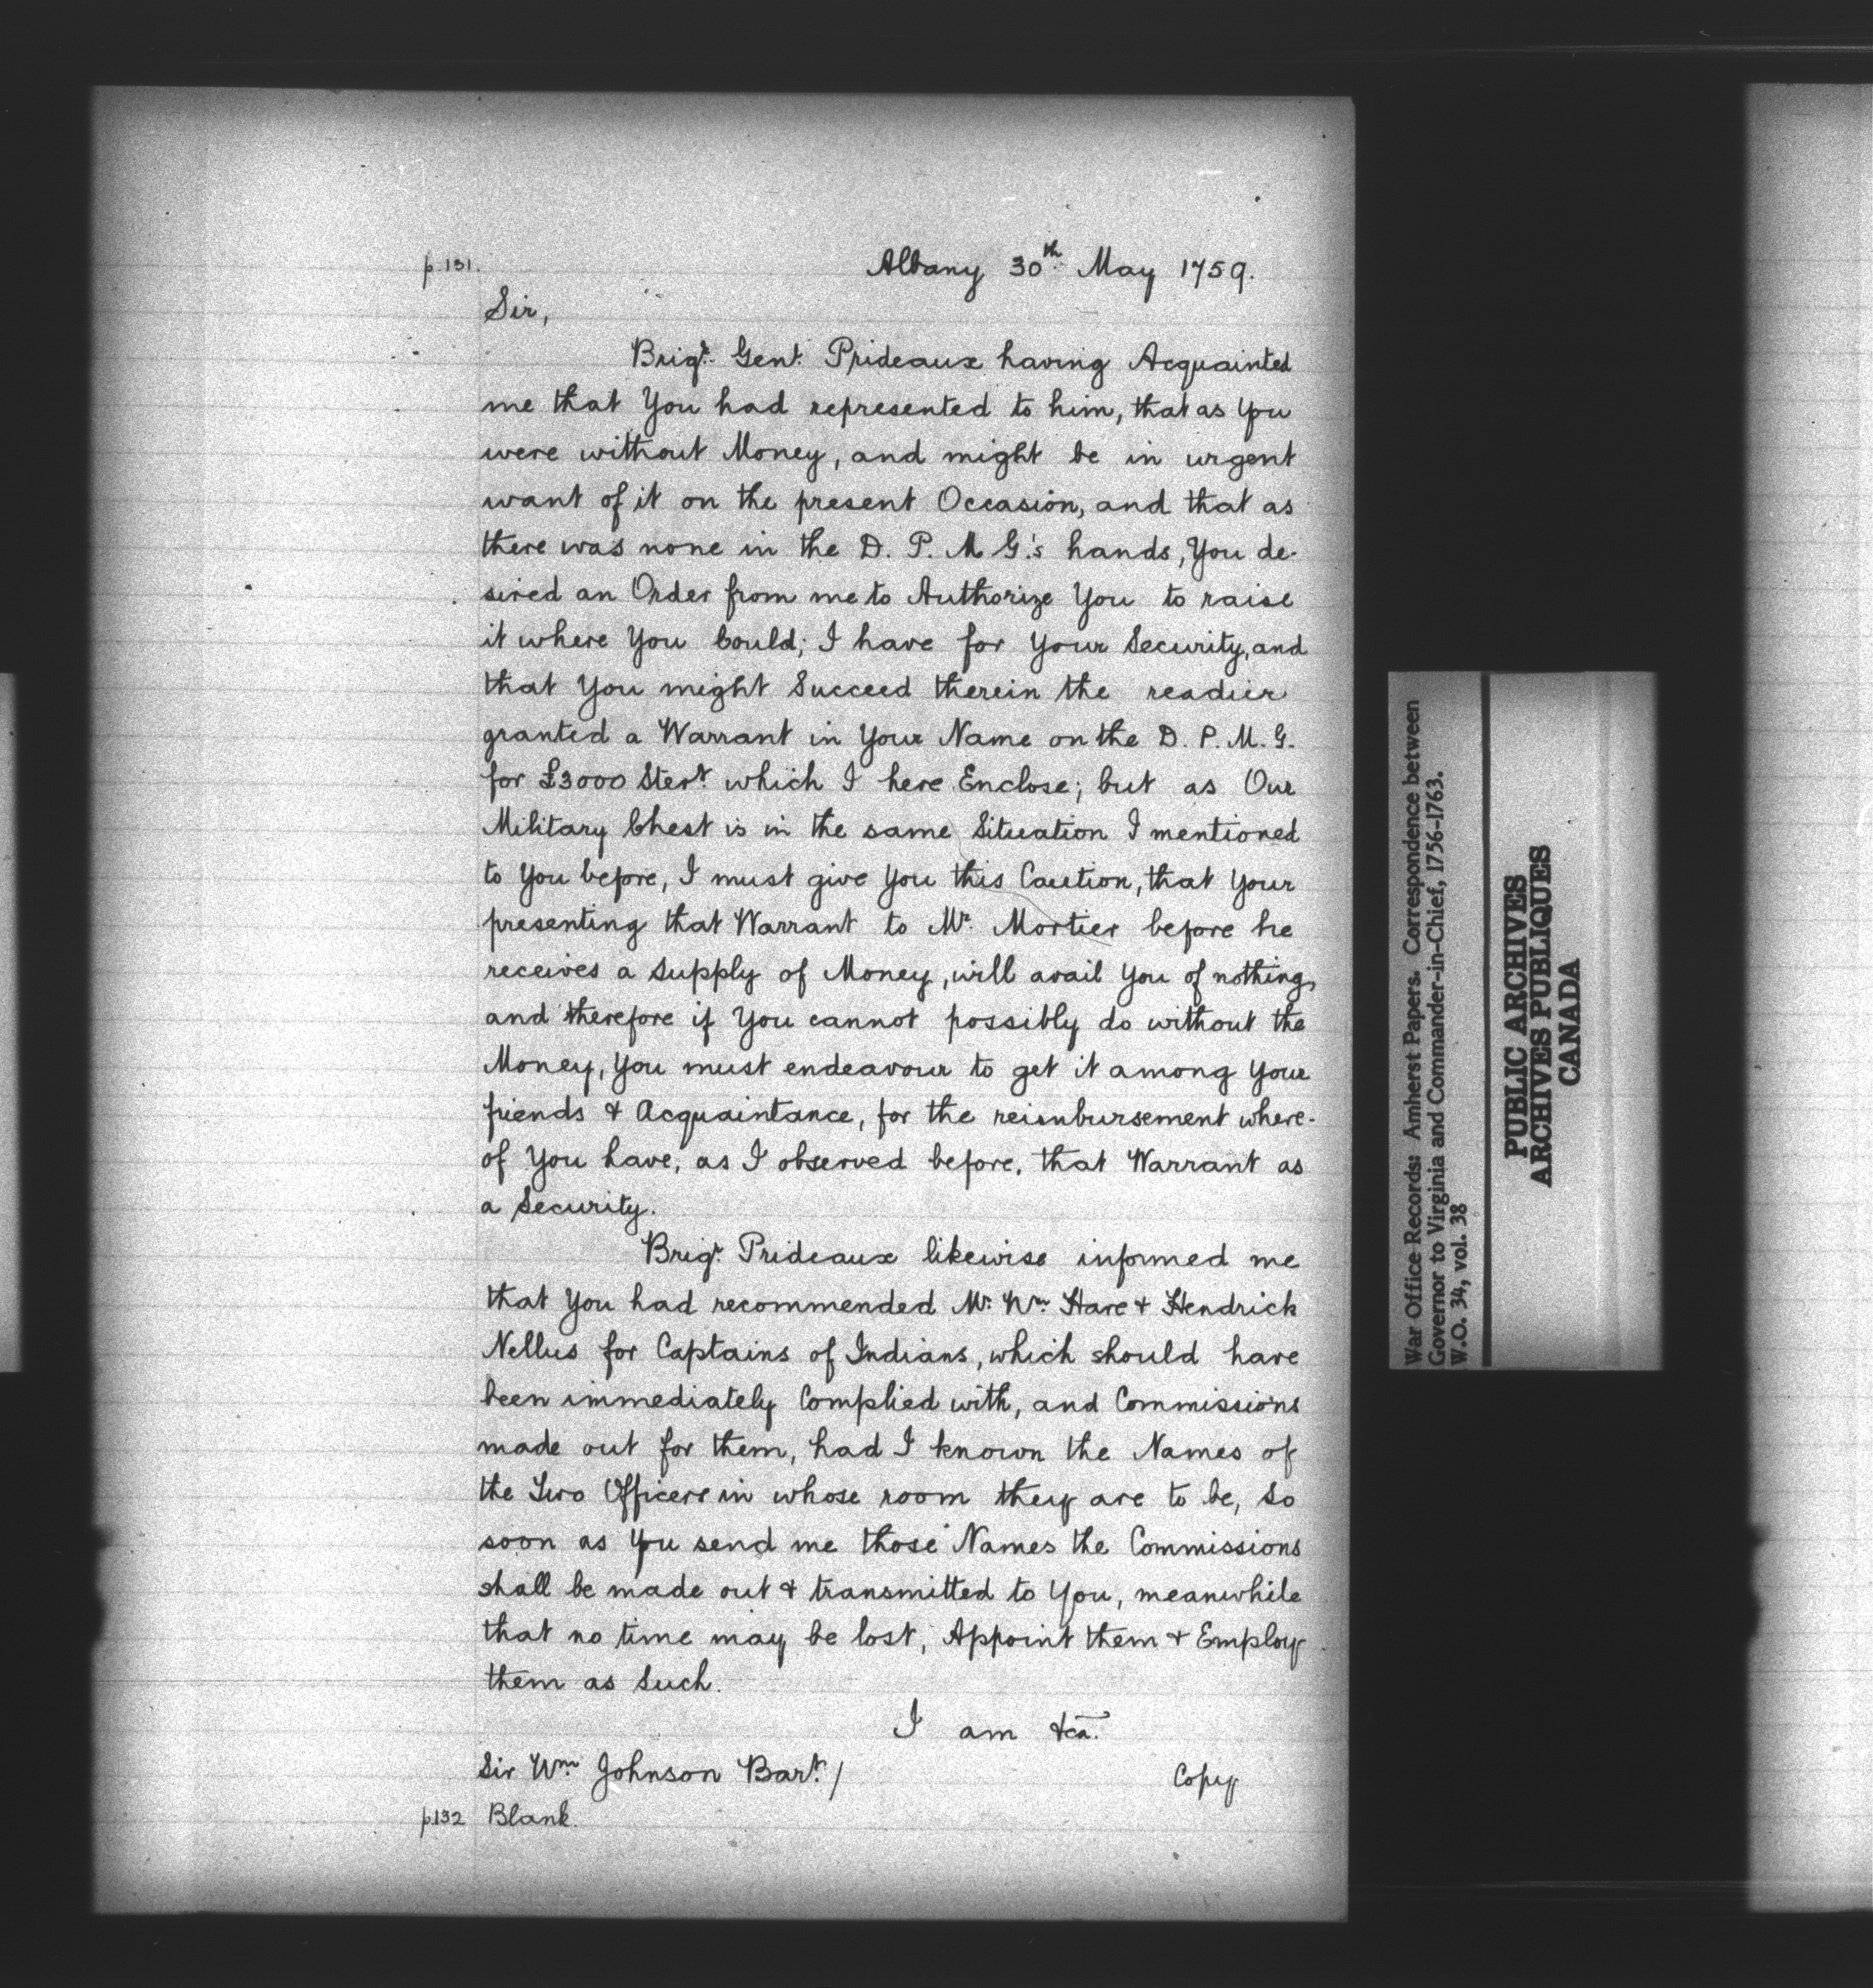 p.131.
Albany 30th May 1759.
Sir,
Brigr. Genl. Prideaux having Acquainted
me that You had represented to him, that as you
were without Money, and might be in urgent
want of it on the present Occasion, and that as
there was none in the D. P. M G.'s hands, You de-
sired an Order from me to Authorize You to raise
it where You Could; I have for Your Security, and
that You might Succeed therein the readier
granted a Warrant in Your Name on the D. P. M. G.
for £3000 Sterg. which I here Enclose; but as Our
Military Chest is in the same Situation I mentioned
to You before, I must give You this Caution, that Your
presenting that Warrant to Mr. Mortier before he
receives a Supply of Money, will avail You of nothing,
and therefore if You cannot possibly do without the
Money, You must endeavour to get it among Your
friends & Acquaintance, for the reimbursement where-
of You have, as I observed before, that Warrant as
a Security.
Brigr. Prideaux likewise informed me
that You had recommended Mr. Wm. Hare & Hendrick
Nellus for Captains of Indians, which should have
been immediately Complied with, and Commissions
made out for them, had I known the Names of
the Two Officers in whose room they are to be, So
soon as You send me those Names the Commissions
shall be made out & transmitted to You, meanwhile
that no time may be lost, Appoint them & Employ
them as Such.
I am &ca.
Sir Wm. Johnson Bart. /
Copy
p.132 Blank.
War Office Records: Amherst Papers. Correspondence between
Governor to Virginia and Commander-in-Chief, 1756-1763.
W.O. 34, vol. 38
PUBLIC ARCHIVES
ARCHIVES PUBLIQUES
CANADA